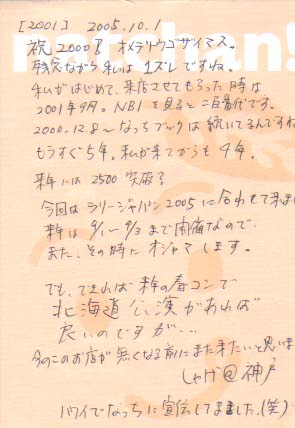 [2001] 2005.10.1
祝2000番 オメデトウゴザイマス。
残念ながら私は1ズレですね。
私がはじめて、来店させてもらった時は
2001年9月。NB1を見ると二百番代です。
2000.12.8〜なっちブックは続いてるんですね
もうすぐ5年。私が来てからも4年。
来年には2500突破?
今回はラリージャパン2005に合わせて来まし
来年は9/1〜9/3まで開催なので、
また、その時にオジャマします。
でも、できれば来年の春コンで
北海道公演があれば
良いのですが・・・
今のこのお店が無くなる前にまた来たいと思いま
しゃけ@神戸
ハワイでなっちに宣伝してきました。(笑)